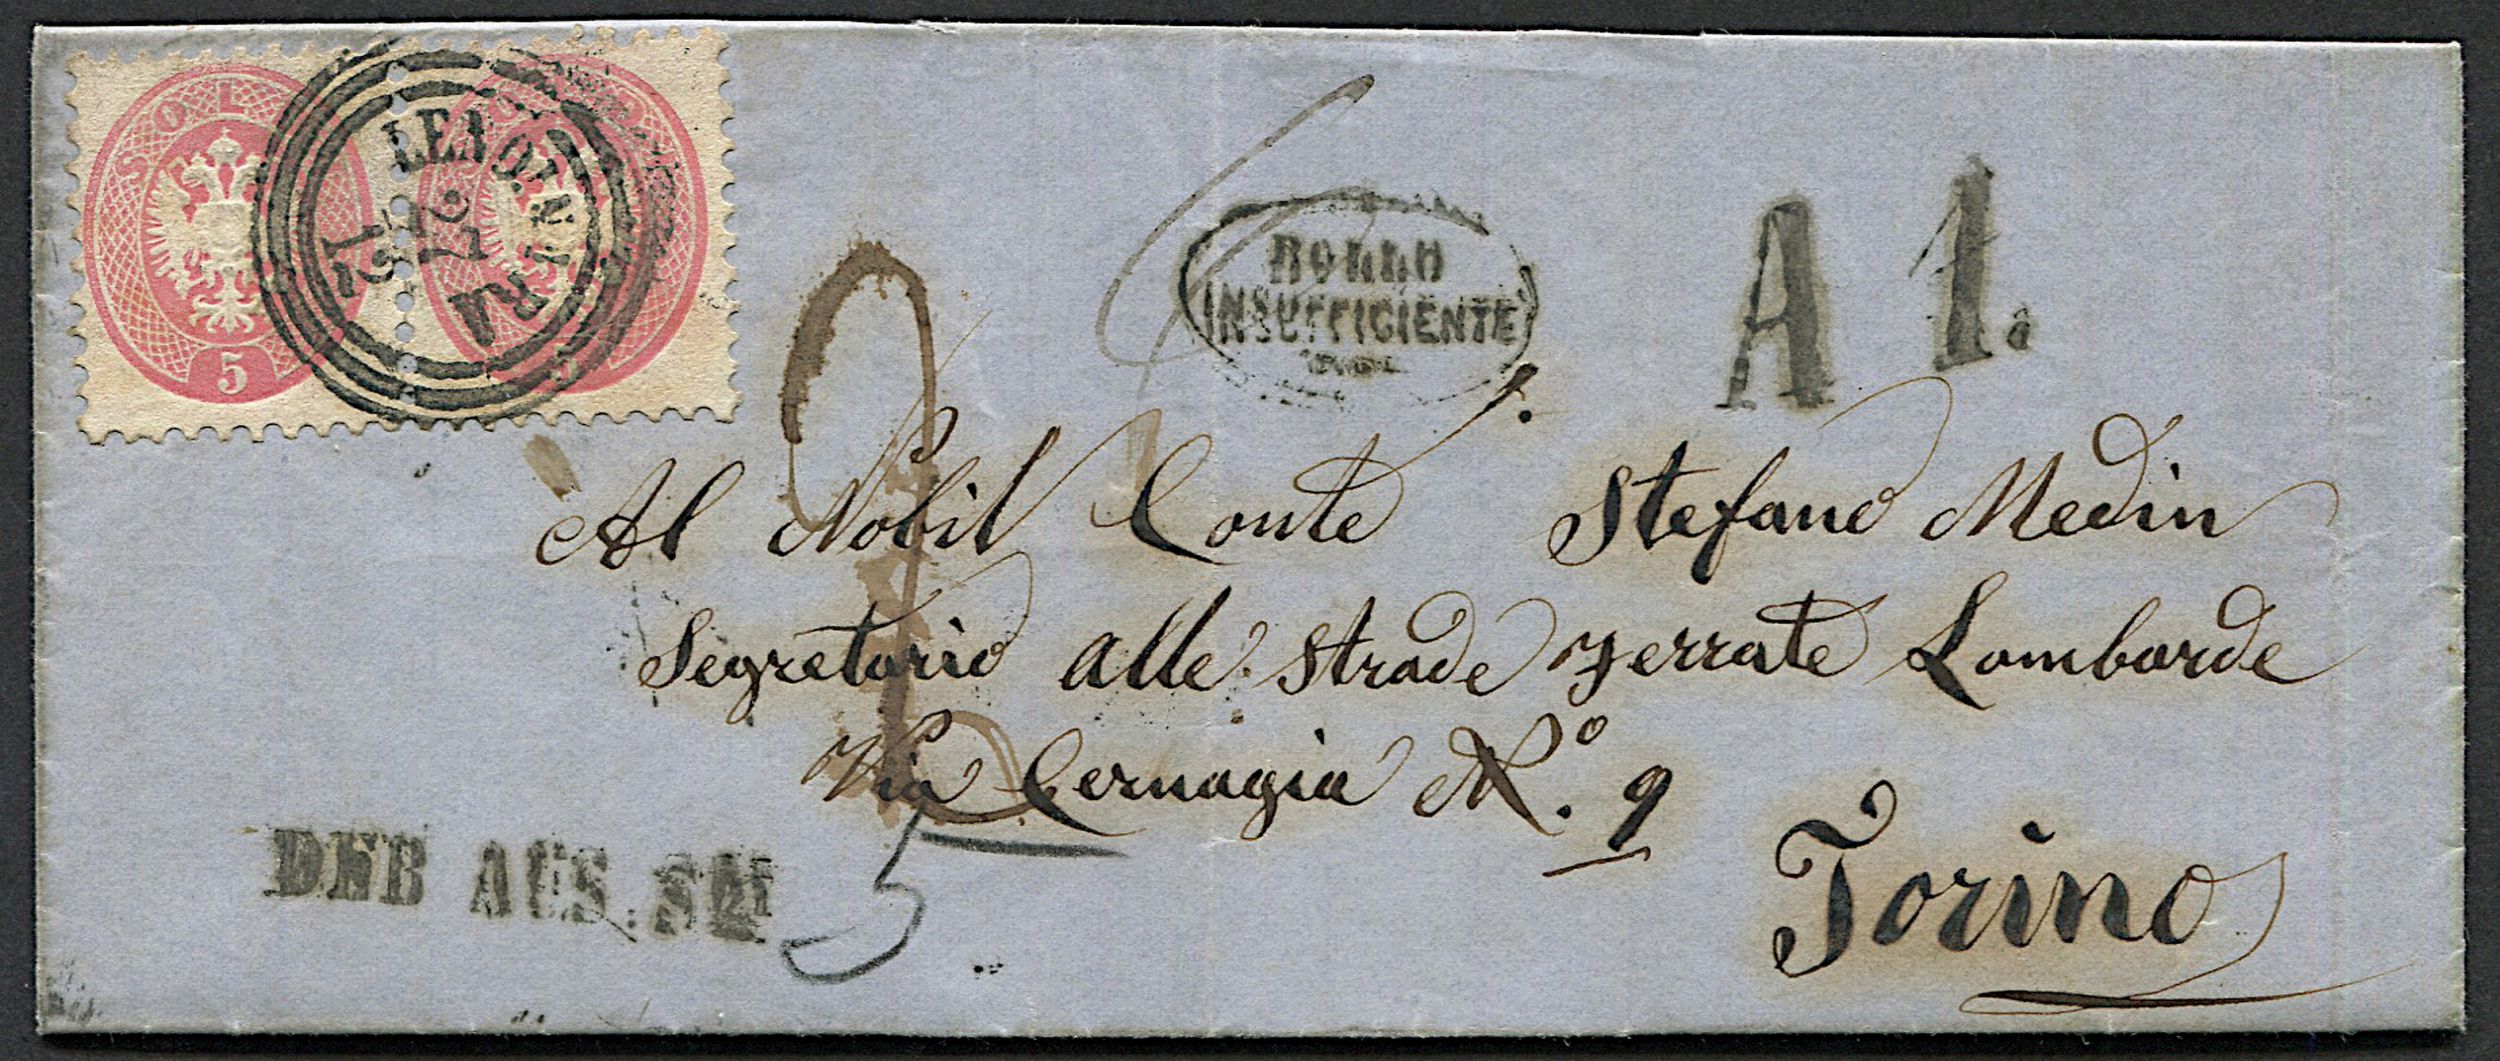 SOLDI
5
SOLDI
5
LENDINARA
27
12
BOLLO
INSUFFICIENTE
A 1.
Al Nobil Conte Stefano Medin
Segretario alle Strade Ferrate Lombarde
Via Cernagia N.º 9
Torino
5